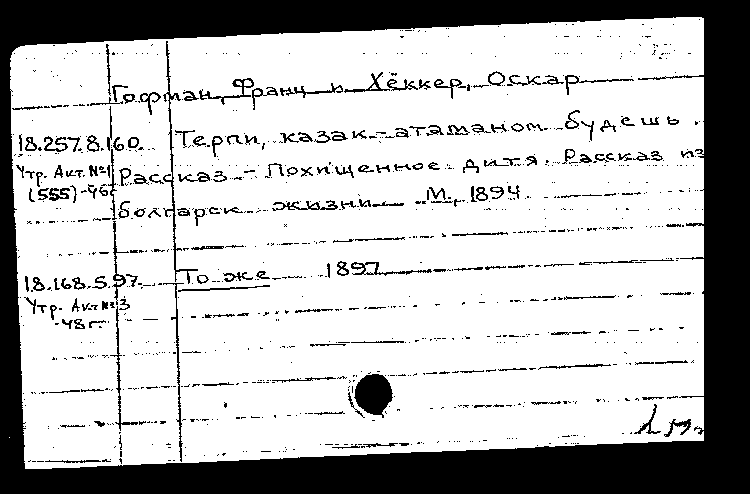 Гофман, Франц и Хёккер, Оскар
18.257.8.160. Терпи, казак - атаманом будешь.
Утр. Акт. №1 Рассказ. - Похищенное дитя. Рассказ из
(555) -46г болгарск жизни М., 1894
18.168.5.97. То же 1897
Утр. Акт №3
-48 г.